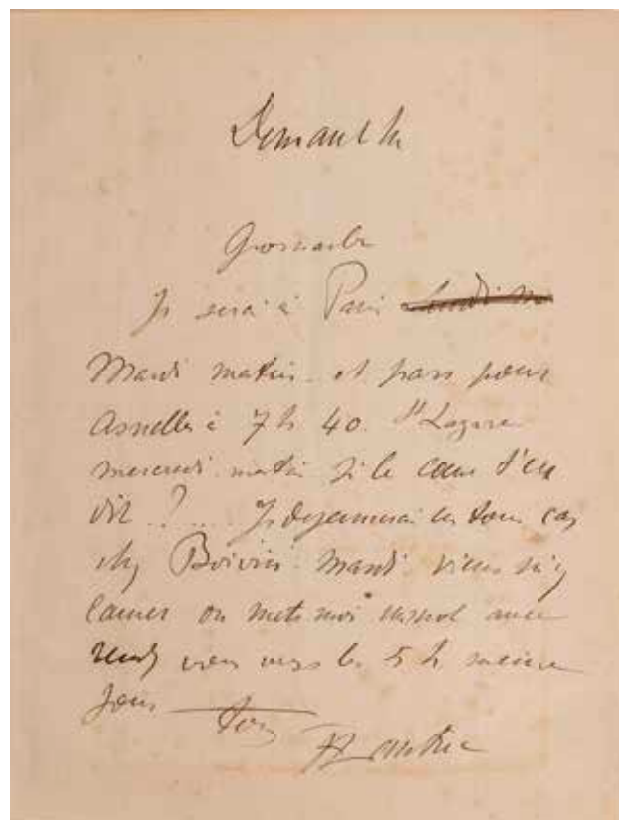 Dimanche
Je serai à Paris
Mardi matin et pars pour
Asnelles à 7 h 40 St Lazare
mercredi matin si le cœur t'en
dit ? ... Je dejeunerai en tous cas
chez Boivin Mardi viens m'y
ou mets moi un mot avec
rendez vous vers les 5 h même
jour
ton
HLautrec